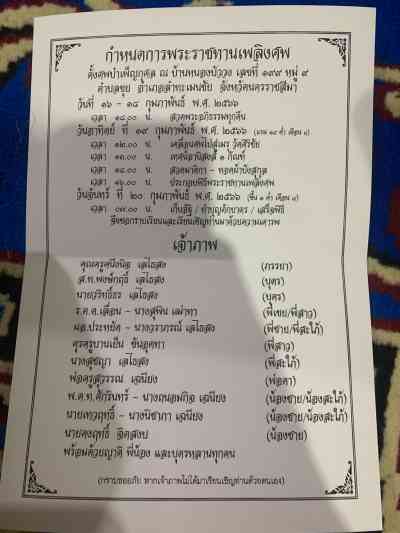 กำหนดการพระราชทานเพลิงศพ
ตั้งศพบำเพ็ญกุศล ณ บ้านหนองบัววง เลขที่ ๑๙๙ หมู่ ๙
ตำบลขุย อำเภอลำทะเมนชัย จังหวัดนครราชสีมา
วันที่ ๑๖ - ๑๘ กุมภาพันธ์ พ.ศ. ๒๕๖๖
เวลา ๑๘.๐๐ น. สวดพระอภิธรรมทุกคืน
วันอาทิตย์ ที่ ๑๙ กุมภาพันธ์ พ.ศ. ๒๕๖๖
เวลา ๑๒.๐๐ น. เคลื่อนศพไปสู่เมรุ วัดศิริชัย
เวลา ๑๓.๐๐ น. เทศน์อานิสงส์ ๑ กัณฑ์
เวลา ๑๔.๐๐ น. สวดมาติกา - ทอดผ้าบังสุกุล
เวลา ๑๖.๐๐ น. ประกอบพิธีพระราชทานเพลิงศพ
วันจันทร์ ที่ ๒๐ กุมภาพันธ์ พ.ศ. ๒๕๖๖
เวลา ๐๗.๐๐ น. เก็บอัฐิ / ทำบุญตักบาตร / เสร็จพิธี
จึงขอกราบเรียนและเรียนเชิญท่านมาด้วยความเคารพ
เจ้าภาพ
คุณครูคนึงนิจ เสไธสง (ภรรยา)
ส.ท.พงษ์ฤทธิ์ เสไธสง (บุตร)
นายวริทธิ์ธร เสไธสง (บุตร)
ร.ต.ต.เลื่อน - นางสุพิน เผ่าทา (พี่เขย/พี่สาว)
ผอ.ประหยัด - นางวราภรณ์ เสไธสง (พี่ชาย/พี่สะใภ้)
คุณครูบานเย็น ขันอุคทา (พี่สาว)
นางสุชญา เสไธสง (พี่สะใภ้)
พ่อครูสุวรรณ เฉนียง (พ่อตา)
พ.ต.ท.ศักรินทร์ - เฉนียง (น้องชาย/น้องสะใภ้)
นายเทวฤทธิ์ - นางนิชาภา เฉนียง (น้องชาย/น้องสะใภ้)
นายคงฤทธิ์ จิตสงบ (น้องชาย)
พร้อมด้วยญาติ พี่น้อง และบุตรหลานทุกคน
(กราบขออภัย หากเจ้าภาพไม่ได้มาเรียนเชิญท่านด้วยตนเอง)